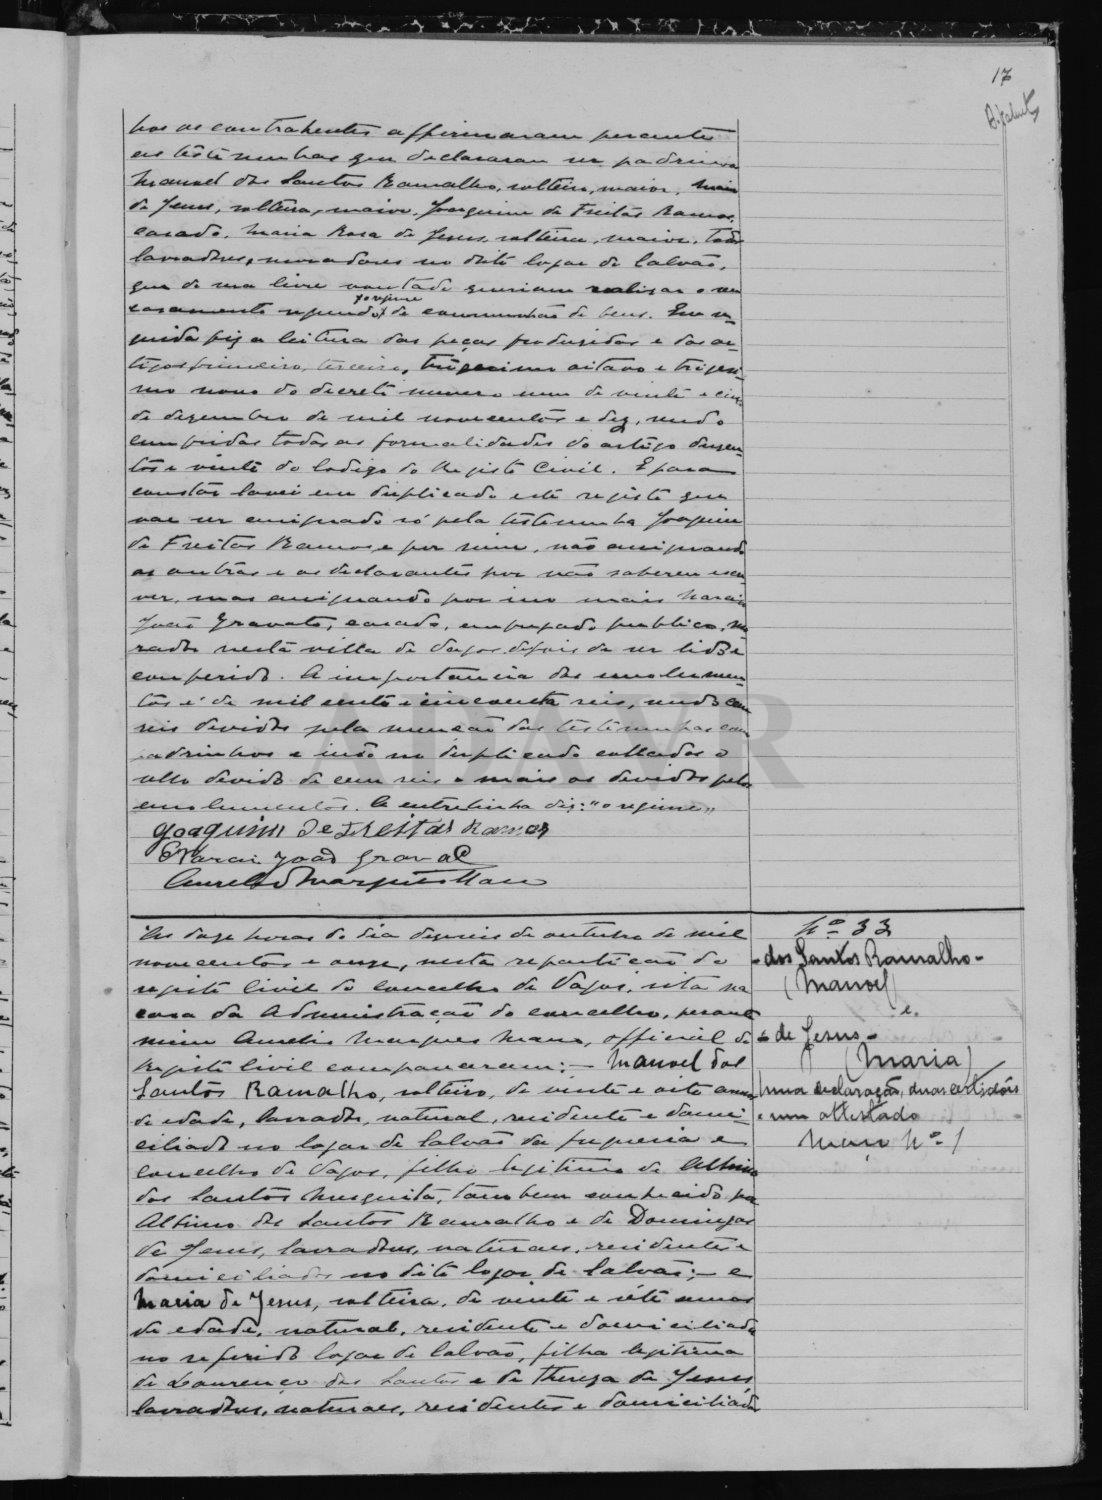 17
bos os contrahentes affirmaram perante
as testemunhas que declararam ser padrinhos
Manoel dos Santos Ramalho, solteiro, maior, Maria
de Jesus, solteira, maior, Joaquim de Freitas Ramos,
casado, Maria Rosa de Jesus, solteira, maior, todos
lavradores, moradores no dito logar de Calvão,
que de sua livre vontade queriam realisar o seu
o regime
casamento segundo de communhão de bens. Em se-
guida fiz a leitura das peças produzidas e dos ar-
tigos primeiro, terceiro, trigesimo oitavo e trigesi-
mo nono do decreto numero um de vinte e cinco
de dezembro de mil novecentos e dez, sendo
cumpridas todas as formalidades do artigo duzen-
tos e vinte do Codigo do Registo Civil. E para
constar lavrei em duplicado este registo que
vae ser assignado só pela testemunha Joaquim
de Freitas Ramos e por mim, não assignando
as outras e os declarantes por não saberem escre-
ver, mas assignando por isso mais Narciso
João Gravato, casado, empregado publico, mo-
rador nesta villa de Vagos, depois de ser lido e
conferido. A importancia dos emolumen-
tos é de mil cento e cincoenta reis, sendo cem
reis devidos pela menção das testemunhas como
padrinhos e vão no duplicado collados o
sello devido de cem reis e mais os devidos pelos
emolumentos. A entrelinha diz: "o regime"
Joaquim de Freitas Ramos
Narciso João Gravato
Aurelio Marques Mano
ADAVR
Ás doze horas do dia dezseis de outubro de mil
novecentos e onze, nesta repartição do
registo civil do concelho de Vagos, sita na
casa da Administração do concelho, perante
mim Aurelio Marques Mano, official do
registo civil compareceram: – Manoel dos
Santos Ramalho, solteiro, de vinte e oito annos
de edade, lavrador, natural, residente e domi-
ciliado no logar de Calvão da freguesia e
concelho de Vagos, filho legitimo de Albino
dos Santos Mesquita, tambem conhecido por
Albino dos Santos Ramalho e de Domingas
de Jesus, lavradores, naturaes, residentes e
domiciliados no dito logar de Calvão; – e
Maria de Jesus, solteira, de vinte e sete annos
de edade, natural, residente e domiciliada
no referido logar de Calvão, filha legitima
de Lourenço dos Santos e de Thereza de Jesus,
lavradores, naturaes, residentes e domiciliados
Nº 33
- dos Santos Ramalho -
(Manoel)
e.
- de Jesus -
(Maria)
Uma declaração, duas certidões
e um attestado
Maço Nº 1